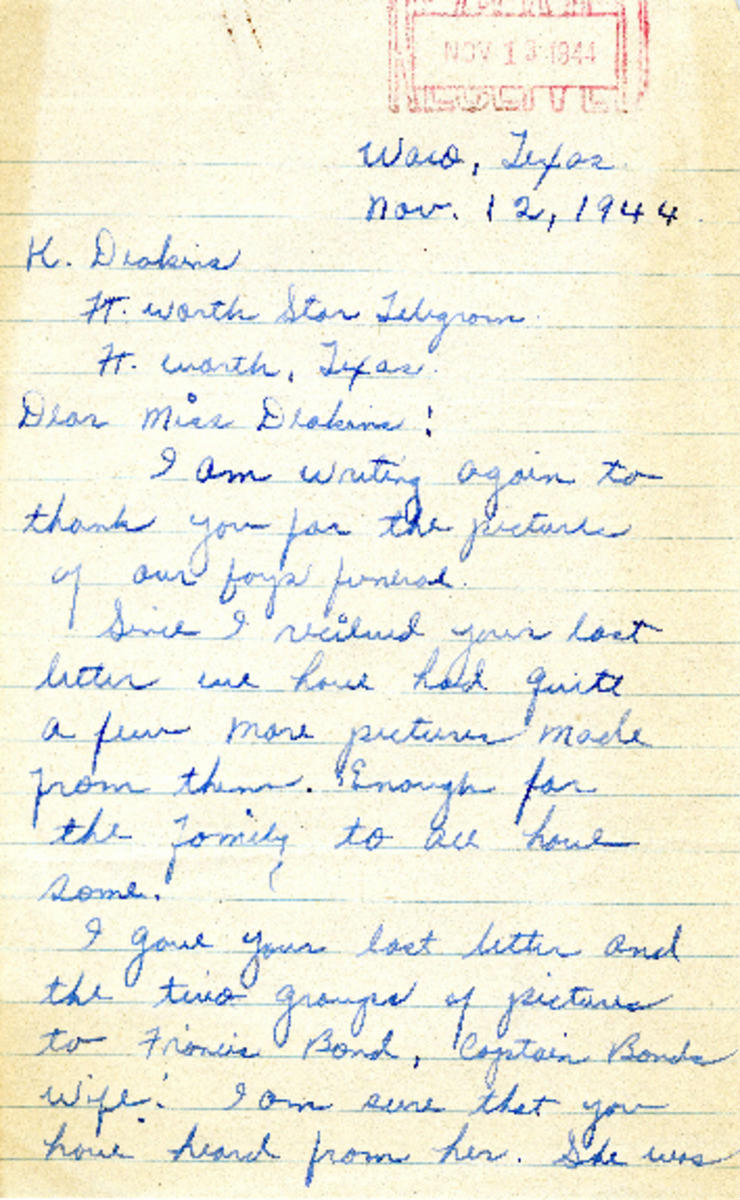 NOV 13 1944
Waco, Texas.
Nov. 12, 1944.
K. Deakins
Ft. Worth Star Telegram.
Ft. Worth, Texas.
Dear Miss Deakins!
I am writing again to
thank you for the pictures
of our boys funeral.
Since I recieved your last
letter we have had quite
a few more pictures made
from them. Enough for
the family to all have
some.
I gave your last letter and
the two groups of pictures
to Francis Bond, Captain Bonds
wife. I am sure that you
have heard from her. She was